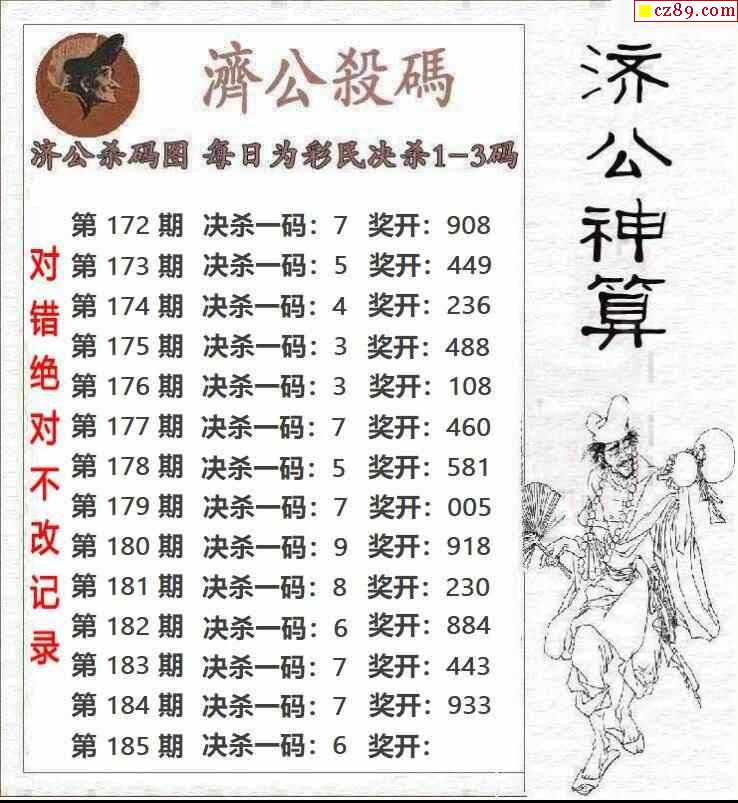 cz89.com
濟公殺碼
济公杀码图 每日为彩民决杀1-3码
第 172 期 决杀一码：7 奖开：908
第 173 期 决杀一码：5 奖开：449
第 174 期 决杀一码：4 奖开：236
第 175 期 决杀一码：3 奖开：488
第 176 期 决杀一码：3 奖开：108
第 177 期 决杀一码：7 奖开：460
第 178 期 决杀一码：5 奖开：581
第 179 期 决杀一码：7 奖开：005
第 180 期 决杀一码：9 奖开：918
第 181 期 决杀一码：8 奖开：230
第 182 期 决杀一码：6 奖开：884
第 183 期 决杀一码：7 奖开：443
第 184 期 决杀一码：7 奖开：933
第 185 期 决杀一码：6 奖开：
对错绝对不改记录
济公神算